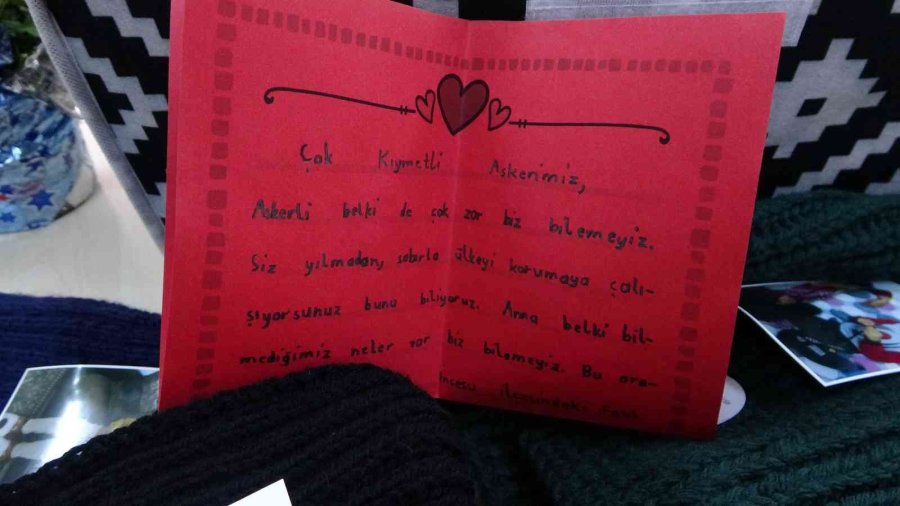 Çok Kıymetli Askerimiz,
Askerli belki de çok zor biz bilemeyiz.
Siz yılmadan, sabırla ülkeyi korumaya çalı-
şıyorsunuz bunu biliyoruz. Ama belki bil-
mediğimiz neler var biz bilemeyiz. Bu ara-